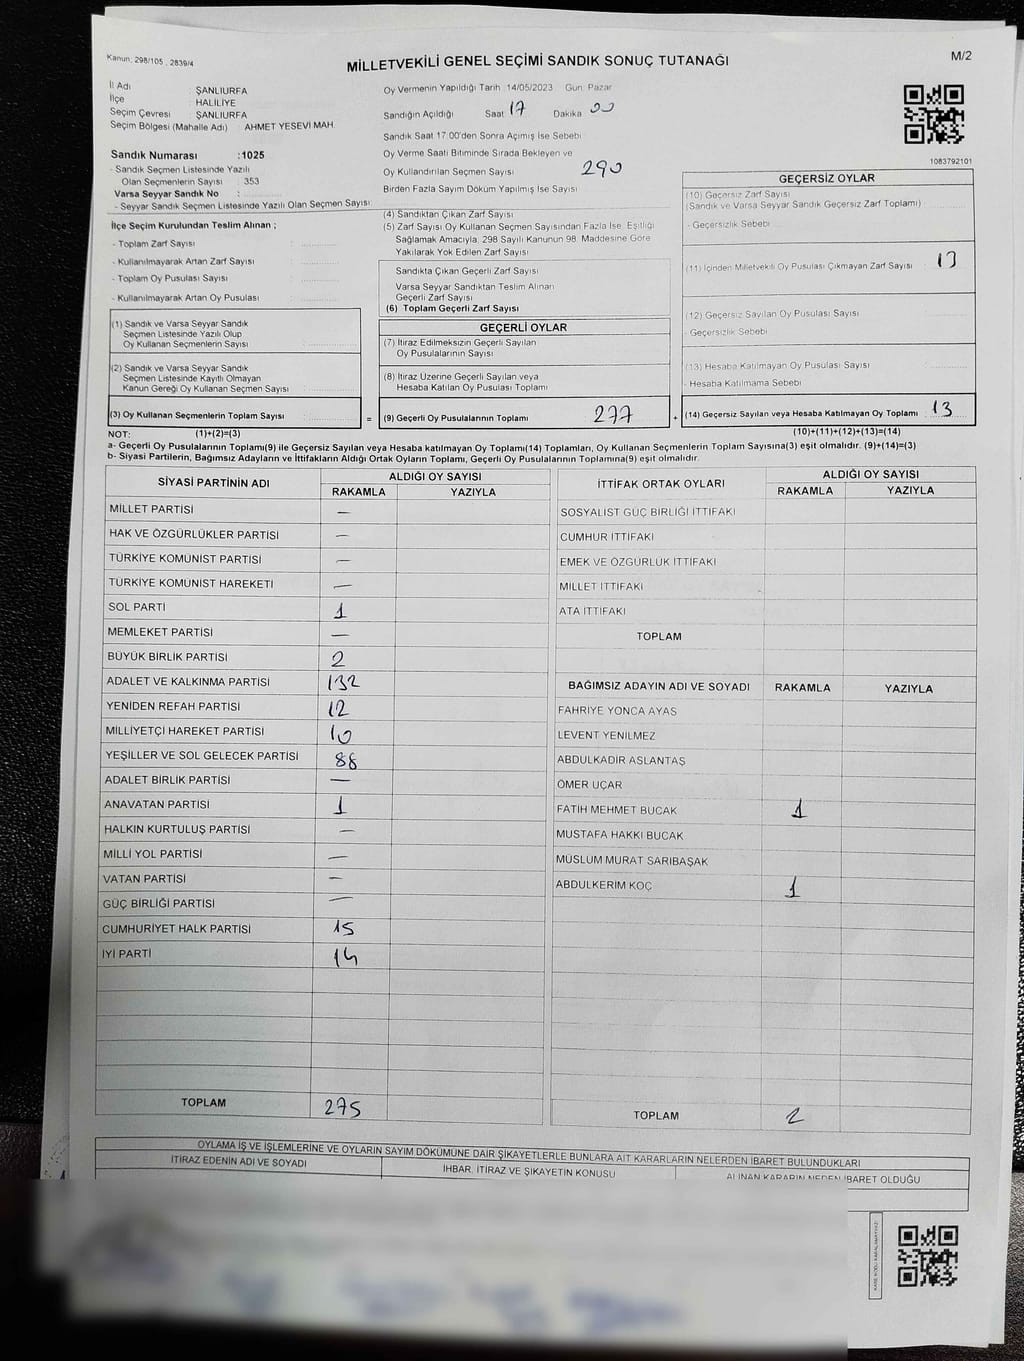 Kanun: 298/105 , 2839/4
MİLLETVEKİLİ GENEL SEÇİMİ SANDIK SONUÇ TUTANAĞI
M/2
İl Adı : ŞANLIURFA
İlçe : HALİLİYE
Seçim Çevresi : ŞANLIURFA
Seçim Bölgesi (Mahalle Adı) : AHMET YESEVİ MAH.
Sandık Numarası :1025
- Sandık Seçmen Listesinde Yazılı
Olan Seçmenlerin Sayısı : 353
Varsa Seyyar Sandık No :
- Seyyar Sandık Seçmen Listesinde Yazılı Olan Seçmen Sayısı:
Oy Vermenin Yapıldığı Tarih: 14/05/2023 Gün: Pazar
Sandığın Açıldığı Saat 17 Dakika 00
Sandık Saat 17:00'den Sonra Açılmış İse Sebebi
Oy Verme Saati Bitiminde Sırada Bekleyen ve
Oy Kullandırılan Seçmen Sayısı 290
Birden Fazla Sayım Döküm Yapılmış İse Sayısı
1083792101
İlçe Seçim Kurulundan Teslim Alınan ;
- Toplam Zarf Sayısı :
- Kullanılmayarak Artan Zarf Sayısı :
- Toplam Oy Pusulası Sayısı :
- Kullanılmayarak Artan Oy Pusulası :
(1) Sandık ve Varsa Seyyar Sandık
Seçmen Listesinde Yazılı Olup
Oy Kullanan Seçmenlerin Sayısı :
(2) Sandık ve Varsa Seyyar Sandık
Seçmen Listesinde Kayıtlı Olmayan
Kanun Gereği Oy Kullanan Seçmen Sayısı :
(3) Oy Kullanan Seçmenlerin Toplam Sayısı : =
(4) Sandıktan Çıkan Zarf Sayısı
(5) Zarf Sayısı Oy Kullanan Seçmen Sayısından Fazla İse, Eşitliği
Sağlamak Amacıyla, 298 Sayılı Kanunun 98. Maddesine Göre
Yakılarak Yok Edilen Zarf Sayısı
Sandıkta Çıkan Geçerli Zarf Sayısı
Varsa Seyyar Sandıktan Teslim Alınan
Geçerli Zarf Sayısı
(6) Toplam Geçerli Zarf Sayısı
GEÇERLİ OYLAR
(7) İtiraz Edilmeksizin Geçerli Sayılan
Oy Pusulalarının Sayısı
(8) İtiraz Üzerine Geçerli Sayılan veya
Hesaba Katılan Oy Pusulası Toplamı
(9) Geçerli Oy Pusulalarının Toplamı 277 +
GEÇERSİZ OYLAR
(10) Geçersiz Zarf Sayısı
(Sandık ve Varsa Seyyar Sandık Geçersiz Zarf Toplamı)
- Geçersizlik Sebebi
(11) İçinden Milletvekili Oy Pusulası Çıkmayan Zarf Sayısı 13
(12) Geçersiz Sayılan Oy Pusulası Sayısı
- Geçersizlik Sebebi
(13) Hesaba Katılmayan Oy Pusulası Sayısı
- Hesaba Katılmama Sebebi
(14) Geçersiz Sayılan veya Hesaba Katılmayan Oy Toplamı 13
NOT: (1)+(2)=(3)
(10)+(11)+(12)+(13)=(14)
a- Geçerli Oy Pusulalarının Toplamı(9) ile Geçersiz Sayılan veya Hesaba katılmayan Oy Toplamı(14) Toplamları, Oy Kullanan Seçmenlerin Toplam Sayısına(3) eşit olmalıdır. (9)+(14)=(3)
b- Siyasi Partilerin, Bağımsız Adayların ve İttifakların Aldığı Ortak Oyların Toplamı, Geçerli Oy Pusulalarının Toplamına(9) eşit olmalıdır.
SİYASİ PARTİNİN ADI
ALDIĞI OY SAYISI
RAKAMLA YAZIYLA
MİLLET PARTİSİ —
HAK VE ÖZGÜRLÜKLER PARTİSİ —
TÜRKİYE KOMÜNİST PARTİSİ —
TÜRKİYE KOMÜNİST HAREKETİ —
SOL PARTİ 1
MEMLEKET PARTİSİ —
BÜYÜK BİRLİK PARTİSİ 2
ADALET VE KALKINMA PARTİSİ 132
YENİDEN REFAH PARTİSİ 12
MİLLİYETÇİ HAREKET PARTİSİ 10
YEŞİLLER VE SOL GELECEK PARTİSİ 88
ADALET BİRLİK PARTİSİ —
ANAVATAN PARTİSİ 1
HALKIN KURTULUŞ PARTİSİ —
MİLLİ YOL PARTİSİ —
VATAN PARTİSİ —
GÜÇ BİRLİĞİ PARTİSİ —
CUMHURİYET HALK PARTİSİ 15
İYİ PARTİ 14
TOPLAM 275
İTTİFAK ORTAK OYLARI
ALDIĞI OY SAYISI
RAKAMLA YAZIYLA
SOSYALİST GÜÇ BİRLİĞİ İTTİFAKI
CUMHUR İTTİFAKI
EMEK VE ÖZGÜRLÜK İTTİFAKI
MİLLET İTTİFAKI
ATA İTTİFAKI
TOPLAM
BAĞIMSIZ ADAYIN ADI VE SOYADI RAKAMLA YAZIYLA
FAHRİYE YONCA AYAS
LEVENT YENİLMEZ
ABDULKADİR ASLANTAŞ
ÖMER UÇAR
FATİH MEHMET BUCAK 1
MUSTAFA HAKKI BUCAK
MÜSLÜM MURAT SARIBAŞAK
ABDULKERİM KOÇ 1
TOPLAM 2
OYLAMA İŞ VE İŞLEMLERİNE VE OYLARIN SAYIM DÖKÜMÜNE DAİR ŞİKAYETLERLE BUNLARA AİT KARARLARIN NELERDEN İBARET BULUNDUKLARI
İTİRAZ EDENİN ADI VE SOYADI
İHBAR, İTİRAZ VE ŞİKAYETİN KONUSU
ALINAN KARARIN NEDEN İBARET OLDUĞU